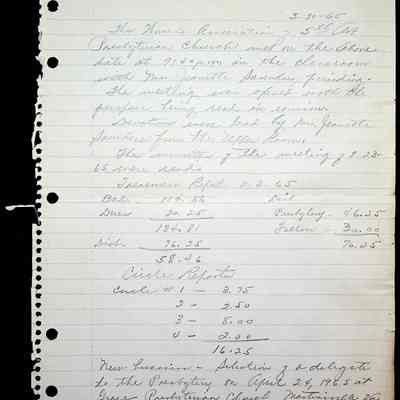 3-30-65
The Women's Association of 5th Ave
Presbyterian Church met on the above
date at 9:30 a.m in the classroom
with Mrs Jeanette Saunders presiding.
The meeting was opened with the
purpose being read in unison.
Devotions were lead by Mrs Jeanette
Saunders from the Upper Room.
The minutes of the meeting of 2-23-
65 were read.
Treasurers Report 3-2-65
Bal. 114.56 Paid
Dues 20.25 Presbytery - 46.25
134.81 30.00
Disb. 76.25 76.25
58.56
Circle Reports
Circle #1 - 3.75
2 - 2.50
3 - 8.00
4 - 2.00
16.25
New business - Selection of a delegate
to the Presbytery on April 24, 1965 at
Grace Presbyterian Church Martinsville Va.